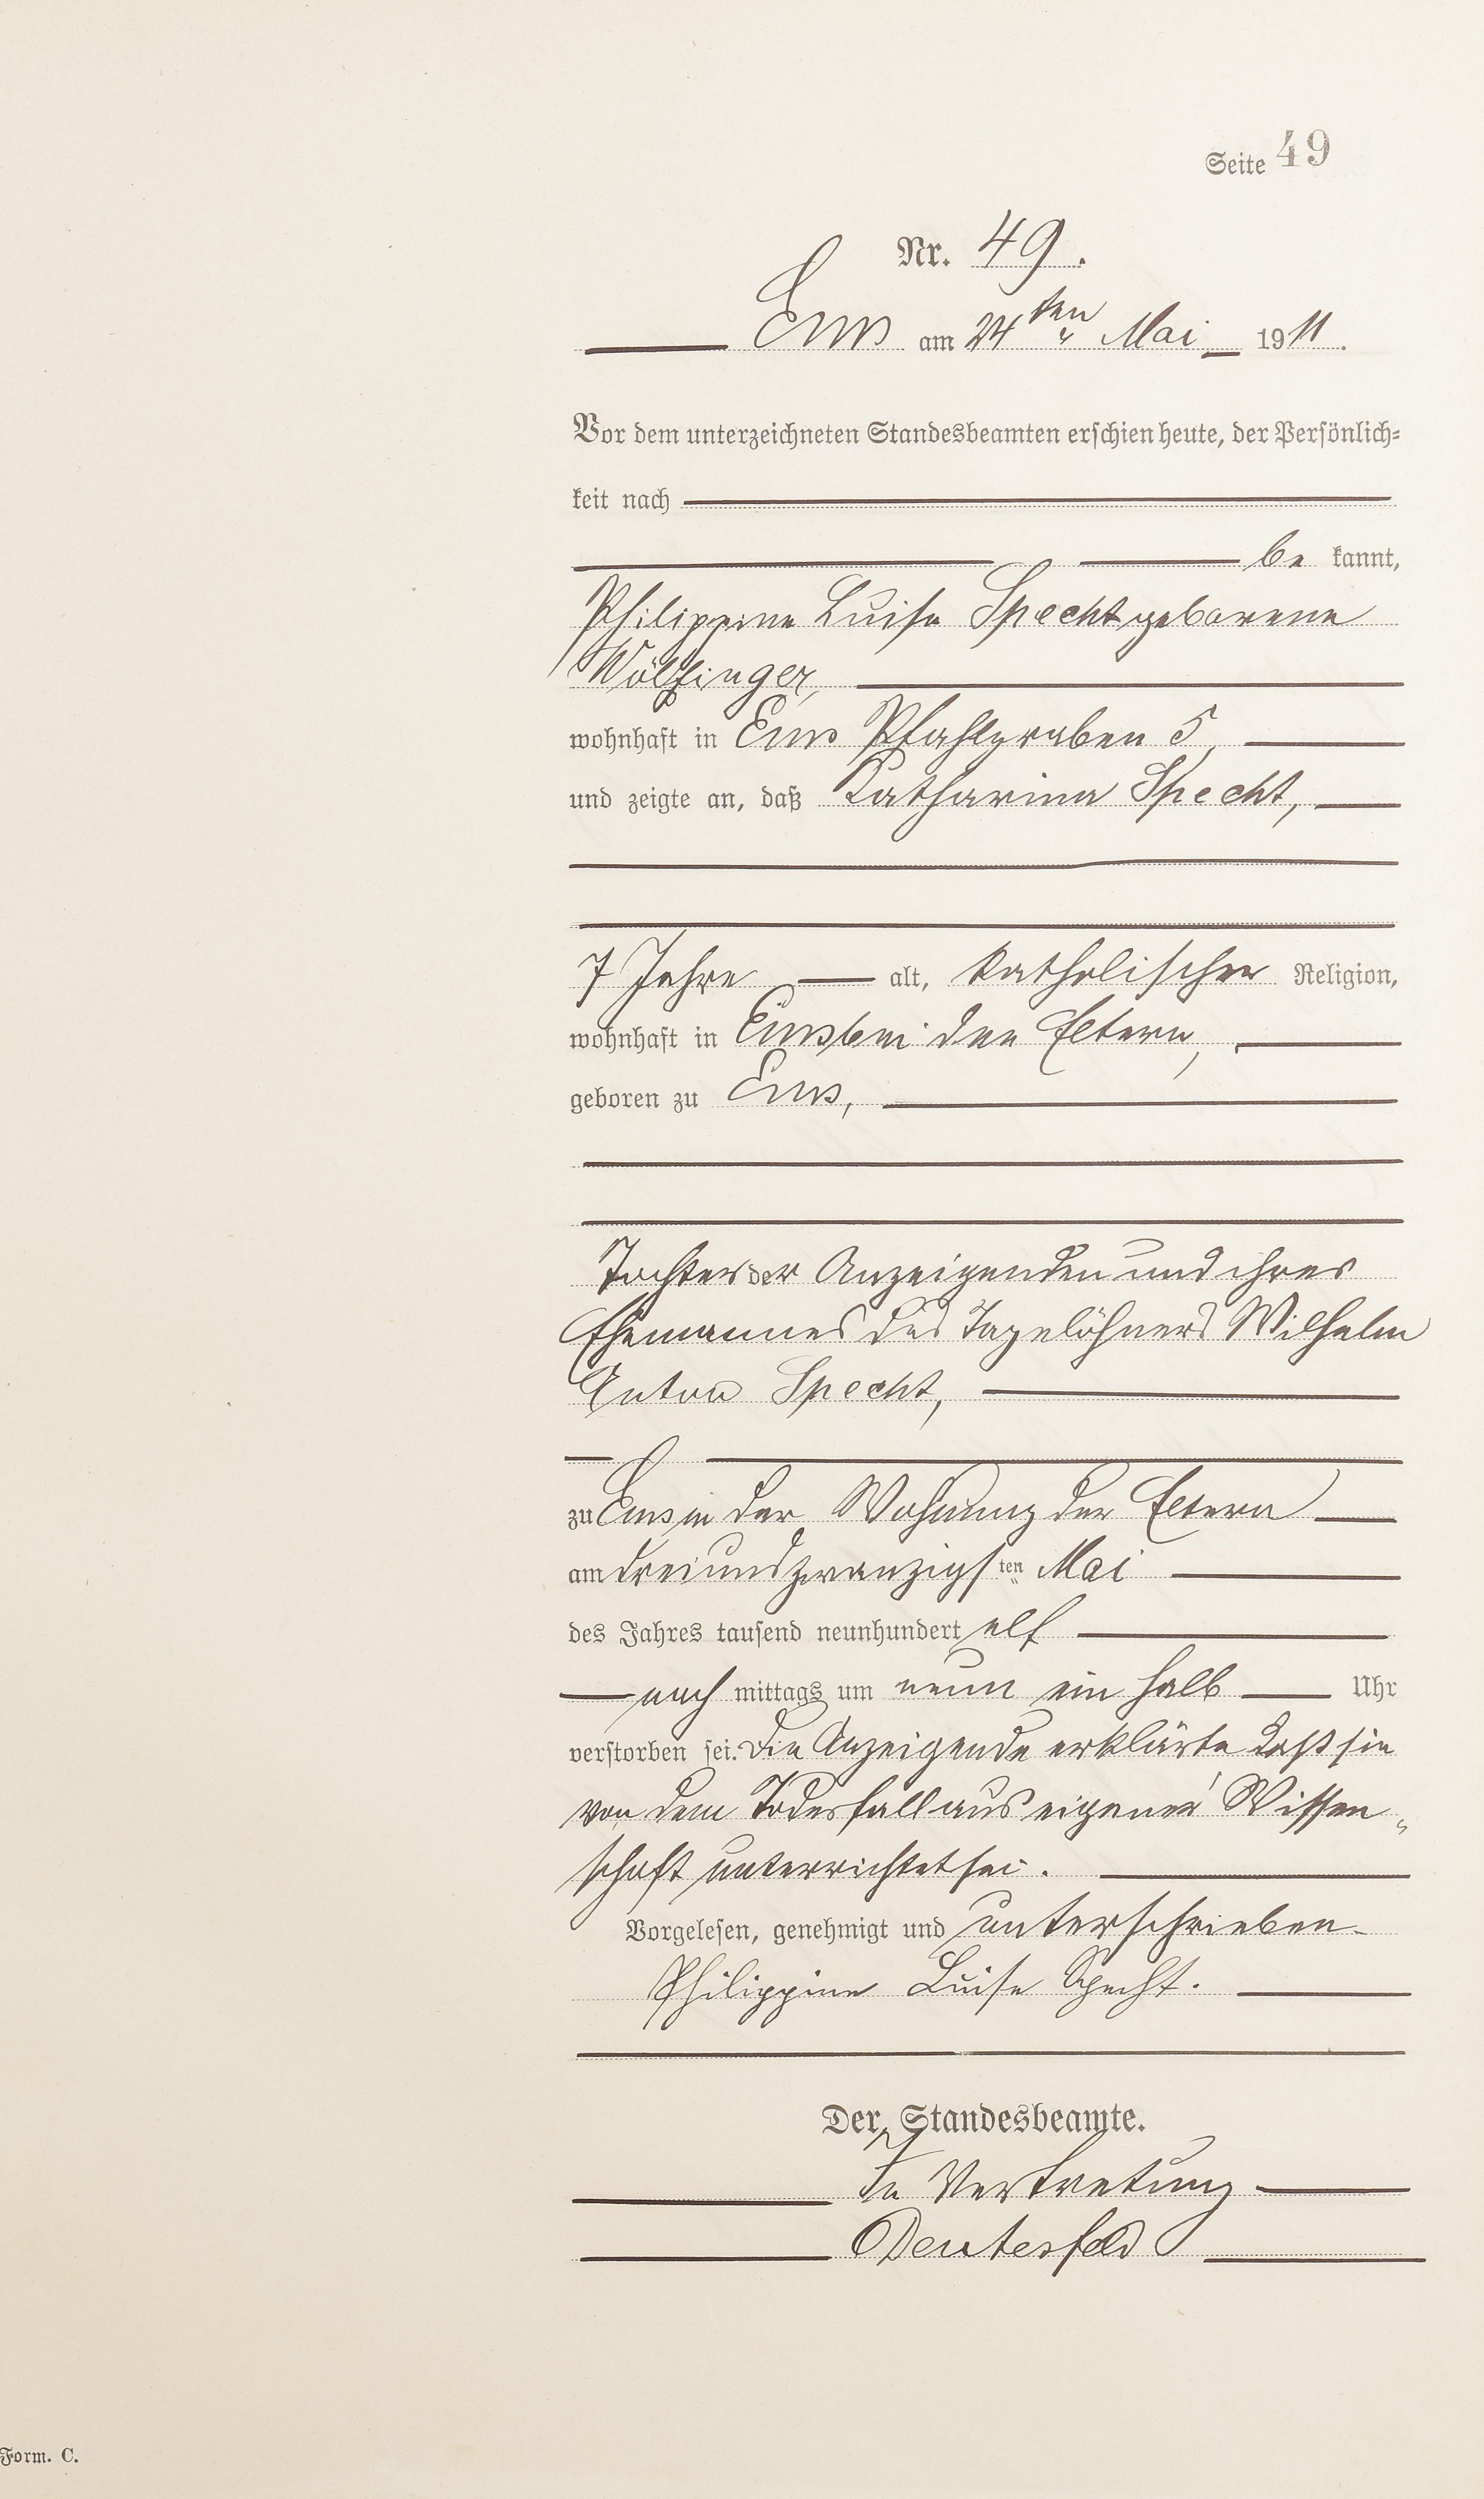 Seite 49
Nr. 49.
Ems am 24ten Mai 1911.
Vor dem unterzeichneten Standesbeamten erschien heute, der Persönlich-
keit nach
be kannt,
Philippine Luise Specht geborene
Wölfinger,
wohnhaft in Ems Pfahlgraben 5,
und zeigte an, daß Katharina Specht,
7 Jahre alt, katholischer Religion,
wohnhaft in Ems bei den Eltern,
geboren zu Ems,
Tochter der Anzeigenden und ihres
Ehemannes des Tagelöhners Wilhelm
Anton Specht,
zu Ems in der Wohnung der Eltern
am dreiundzwanzigsten Mai
des Jahres tausend neunhundert elf
nach mittags um neun ein halb Uhr
verstorben sei. Die Anzeigende erklärte daß sie
von dem Todesfall aus eigener Wissen-
schaft unterrichtet sei.
Vorgelesen, genehmigt und unterschrieben
Philippine Luise Specht.
Der Standesbeamte.
In Vertretung
Deutesfeld
Form. C.